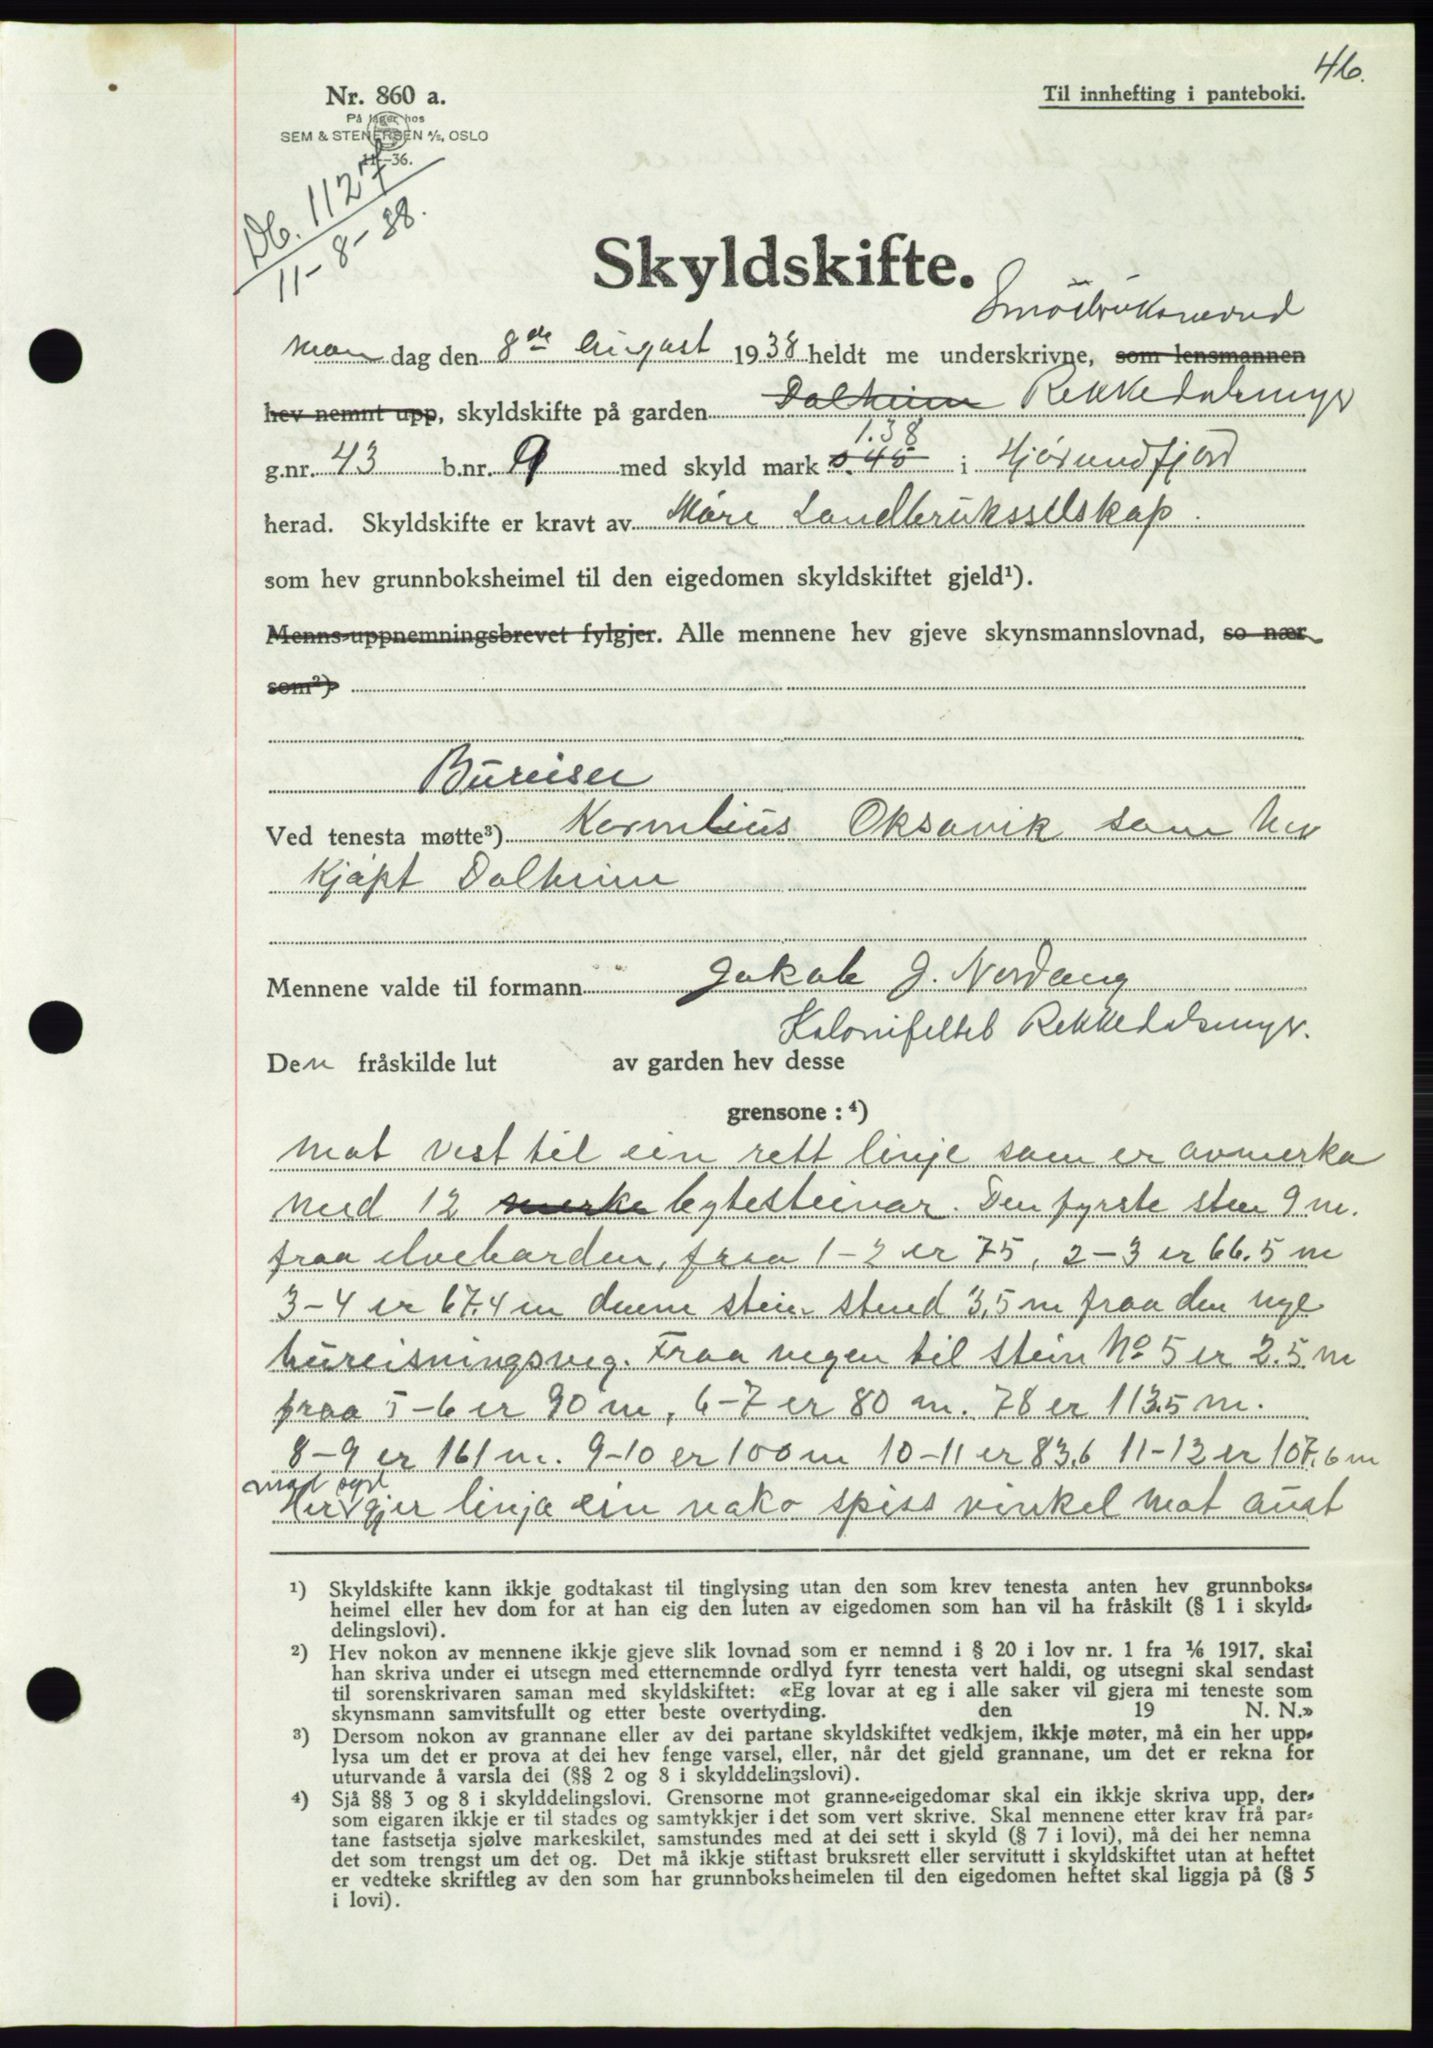 46.
Nr. 860 a.
Til innhefting i panteboki.
På lager hos
SEM & STENERSEN A/S, OSLO
11—36.
Db. 1127
11-8-38.
Skyldskifte.
Småbruksnemnd
Mandag den 8de August 1938 heldt me underskrivne, som lensmannen
hev nemnt upp, skyldskifte på garden Dalheim Rekkedalsmyr
1.38
g.nr. 43 b.nr. 9 med skyld mark 0.40 i Hjørundfjord
herad. Skyldskifte er kravt av Møre Landbruksselskap.
som hev grunnboksheimel til den eigedomen skyldskiftet gjeld¹).
Menns-uppnemningsbrevet fylgjer. Alle mennene hev gjeve skynsmannslovnad, so nær
som²)
Bureiser
Ved tenesta møtte³) Kornelius Oksavik som hev
kjøpt Dalheim
Mennene valde til formann Jakob J. Nordang
Kolonifeltet Rekkedalsmyr.
Den fråskilde lut av garden hev desse
grensone : ⁴)
mot vest til ein rett linje som er avmerka
med 12 merke bytesteinar. Den fyrste stein 9 m.
fraa elvebarden, fraa 1-2 er 75, 2-3 er 66.5 m
3-4 er 67.4 m denne stein stend 3,5 m fraa den nye
bureisningsveg. Fraa vegen til stein No 5 er 2.5 m
fraa 5-6 er 90 m, 6-7 er 80 m. 78 er 113.5 m.
8-9 er 161 m. 9-10 er 100 m 10-11 er 83,6 11-12 er 107,6 m
mot syd
Her gjer linja ein nako spiss vinkel mot aust
¹) Skyldskifte kann ikkje godtakast til tinglysing utan den som krev tenesta anten hev grunnboks-
heimel eller hev dom for at han eig den luten av eigedomen som han vil ha fråskilt (§ 1 i skyld-
delingslovi).
²) Hev nokon av mennene ikkje gjeve slik lovnad som er nemnd i § 20 i lov nr. 1 fra 1/6 1917, skal
han skriva under ei utsegn med etternemnde ordlyd fyrr tenesta vert haldi, og utsegni skal sendast
til sorenskrivaren saman med skyldskiftet: «Eg lovar at eg i alle saker vil gjera mi teneste som
skynsmann samvitsfullt og etter beste overtyding. den 19 N. N.»
³) Dersom nokon av grannane eller av dei partane skyldskiftet vedkjem, ikkje møter, må ein her upp-
lysa um det er prova at dei hev fenge varsel, eller, når det gjeld grannane, um det er rekna for
uturvande å varsla dei (§§ 2 og 8 i skylddelingslovi).
⁴) Sjå §§ 3 og 8 i skylddelingslovi. Grensorne mot granne-eigedomar skal ein ikkje skriva upp, der-
som eigaren ikkje er til stades og samtykkjer i det som vert skrive. Skal mennene etter krav frå par-
tane fastsetja sjølve markeskilet, samstundes med at dei sett i skyld (§ 7 i lovi), må dei her nemna
det som trengst um det og. Det må ikkje stiftast bruksrett eller servitutt i skyldskiftet utan at heftet
er vedteke skriftleg av den som har grunnboksheimelen til den eigedomen heftet skal liggja på (§ 5
i lovi).